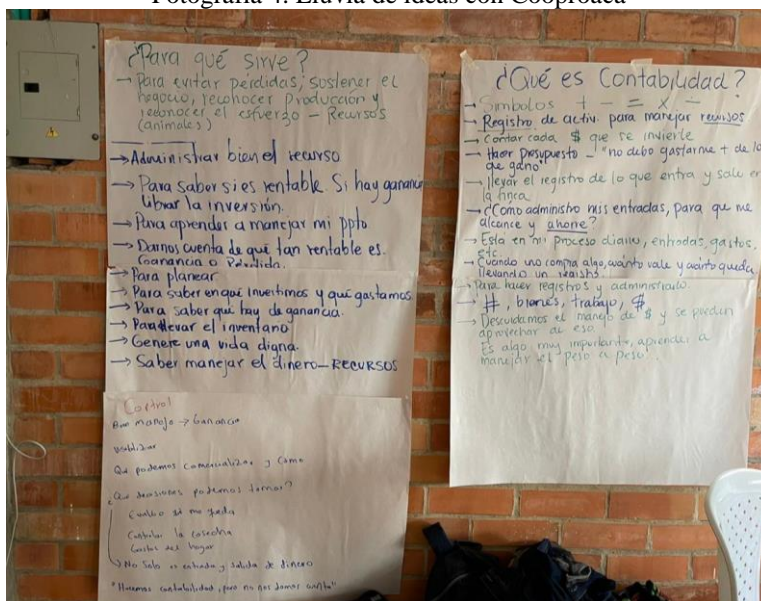 Fotografía 4. Lluvia de ideas con Cooproaca
¿Para qué sirve?
→ Para evitar pérdidas, sostener el
negocio, reconocer Producción y
reconocer el esfuerzo – Recursos
(animales)
→ Administrar bien el recurso
→ Para saber si es rentable. Si hay ganancia
librar la inversión.
→ Para aprender a manejar mi ppto
→ Darnos cuenta de qué tan rentable es.
Ganancia o Pérdida.
→ Para planear
→ Para saber en qué invertimos y qué gastamos
→ Para saber qué hay de ganancia.
→ Para llevar el inventario
→ Genere una vida digna.
→ Saber manejar el dinero – RECURSOS
Control
Buen manejo → Ganancia
Qué podemos comercializar y Como
¿Qué decisiones podemos tomar?
Cuanto me queda
Controlar la cosecha
Gastos del hogar
→ No Solo es entrada y salida de dinero
"Hacemos contabilidad, pero no nos damos cuenta"
¿Qué es Contabilidad?
→ Símbolos + – = x ÷
→ Registro de activ. para manejar recursos
→ Contar cada $ que se invierte
→ Hacer presupuesto – "no debo gastarme + de lo
que gano"
→ llevar el registro de lo que entra y sale en
la finca
→ ¿Cómo administro mis entradas, para que me
alcance y ahorre?
→ Esta en mi proceso diario, entradas, gastos,
etc.
→ Cuando uno compra algo, cuánto vale y cuánto queda
llevando un registro.
→ Para hacer registros y administrarlo.
→ #, bienes, trabajo, $
→ Descuidamos el manejo de $ y se pueden
aprovechar de eso.
Es algo muy importante, aprender a
manejar el peso a peso.